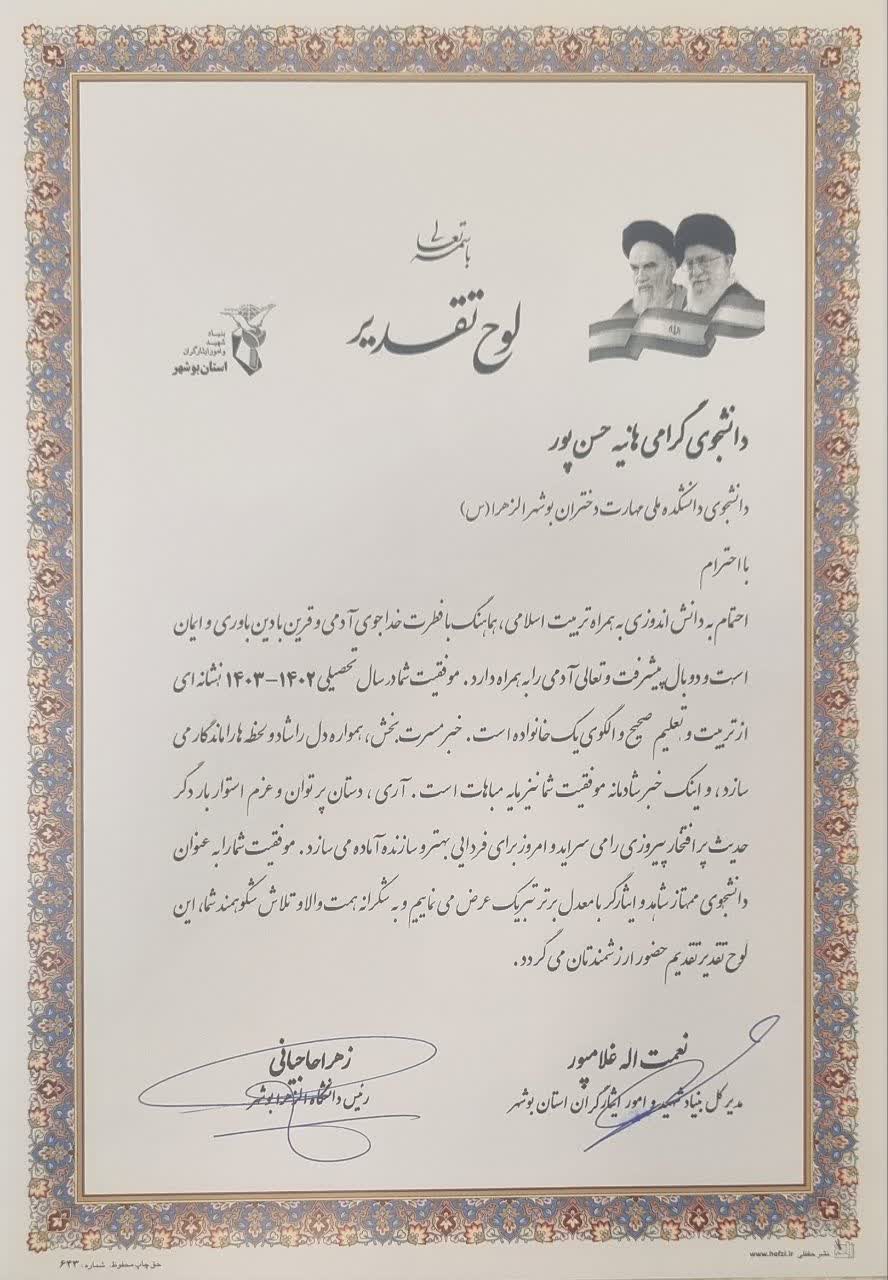 باسمه تعالی
لوح تقدیر
بنیاد
شهید
و امور ایثارگران
استان بوشهر
دانشجوی گرامی هانیه حسن پور
دانشجوی دانشکده ملی مهارت دختران بوشهر الزهرا (س)
با احترام
اهتمام به دانش اندوزی به همراه تربیت اسلامی، هماهنگ با فطرت خداجوی آدمی و قرین با دین باوری و ایمان
است و دو بال پیشرفت و تعالی آدمی را به همراه دارد. موفقیت شما در سال تحصیلی ۱۴۰۲-۱۴۰۳ نشانه ای
از تربیت و تعلیم صحیح و الگوی یک خانواده است. خبر مسرت بخش، همواره دل را شاد و لحظه ها را ماندگار می
سازد، و اینک خبر شادمانه موفقیت شما نیز مایه مباهات است. آری، دستان پر توان و عزم استوار بار دگر
حدیث پر افتخار پیروزی را می سراید و امروز برای فردایی بهتر و سازنده آماده می سازد. موفقیت شما را به عنوان
دانشجوی ممتاز شاهد و ایثارگر با معدل برتر تبریک عرض می نماییم و به شکرانه همت والا و تلاش شکوهمند شما، این
لوح تقدیر تقدیم حضور ارزشمندتان می گردد.
نعمت اله غلامپور
مدیر کل بنیاد شهید و امور ایثارگران استان بوشهر
زهرا حاجیانی
رئیس دانشگاه الزهرا بوشهر
نشر حفظی www.hefzi.ir
حق چاپ محفوظ. شماره: ۶۴۳